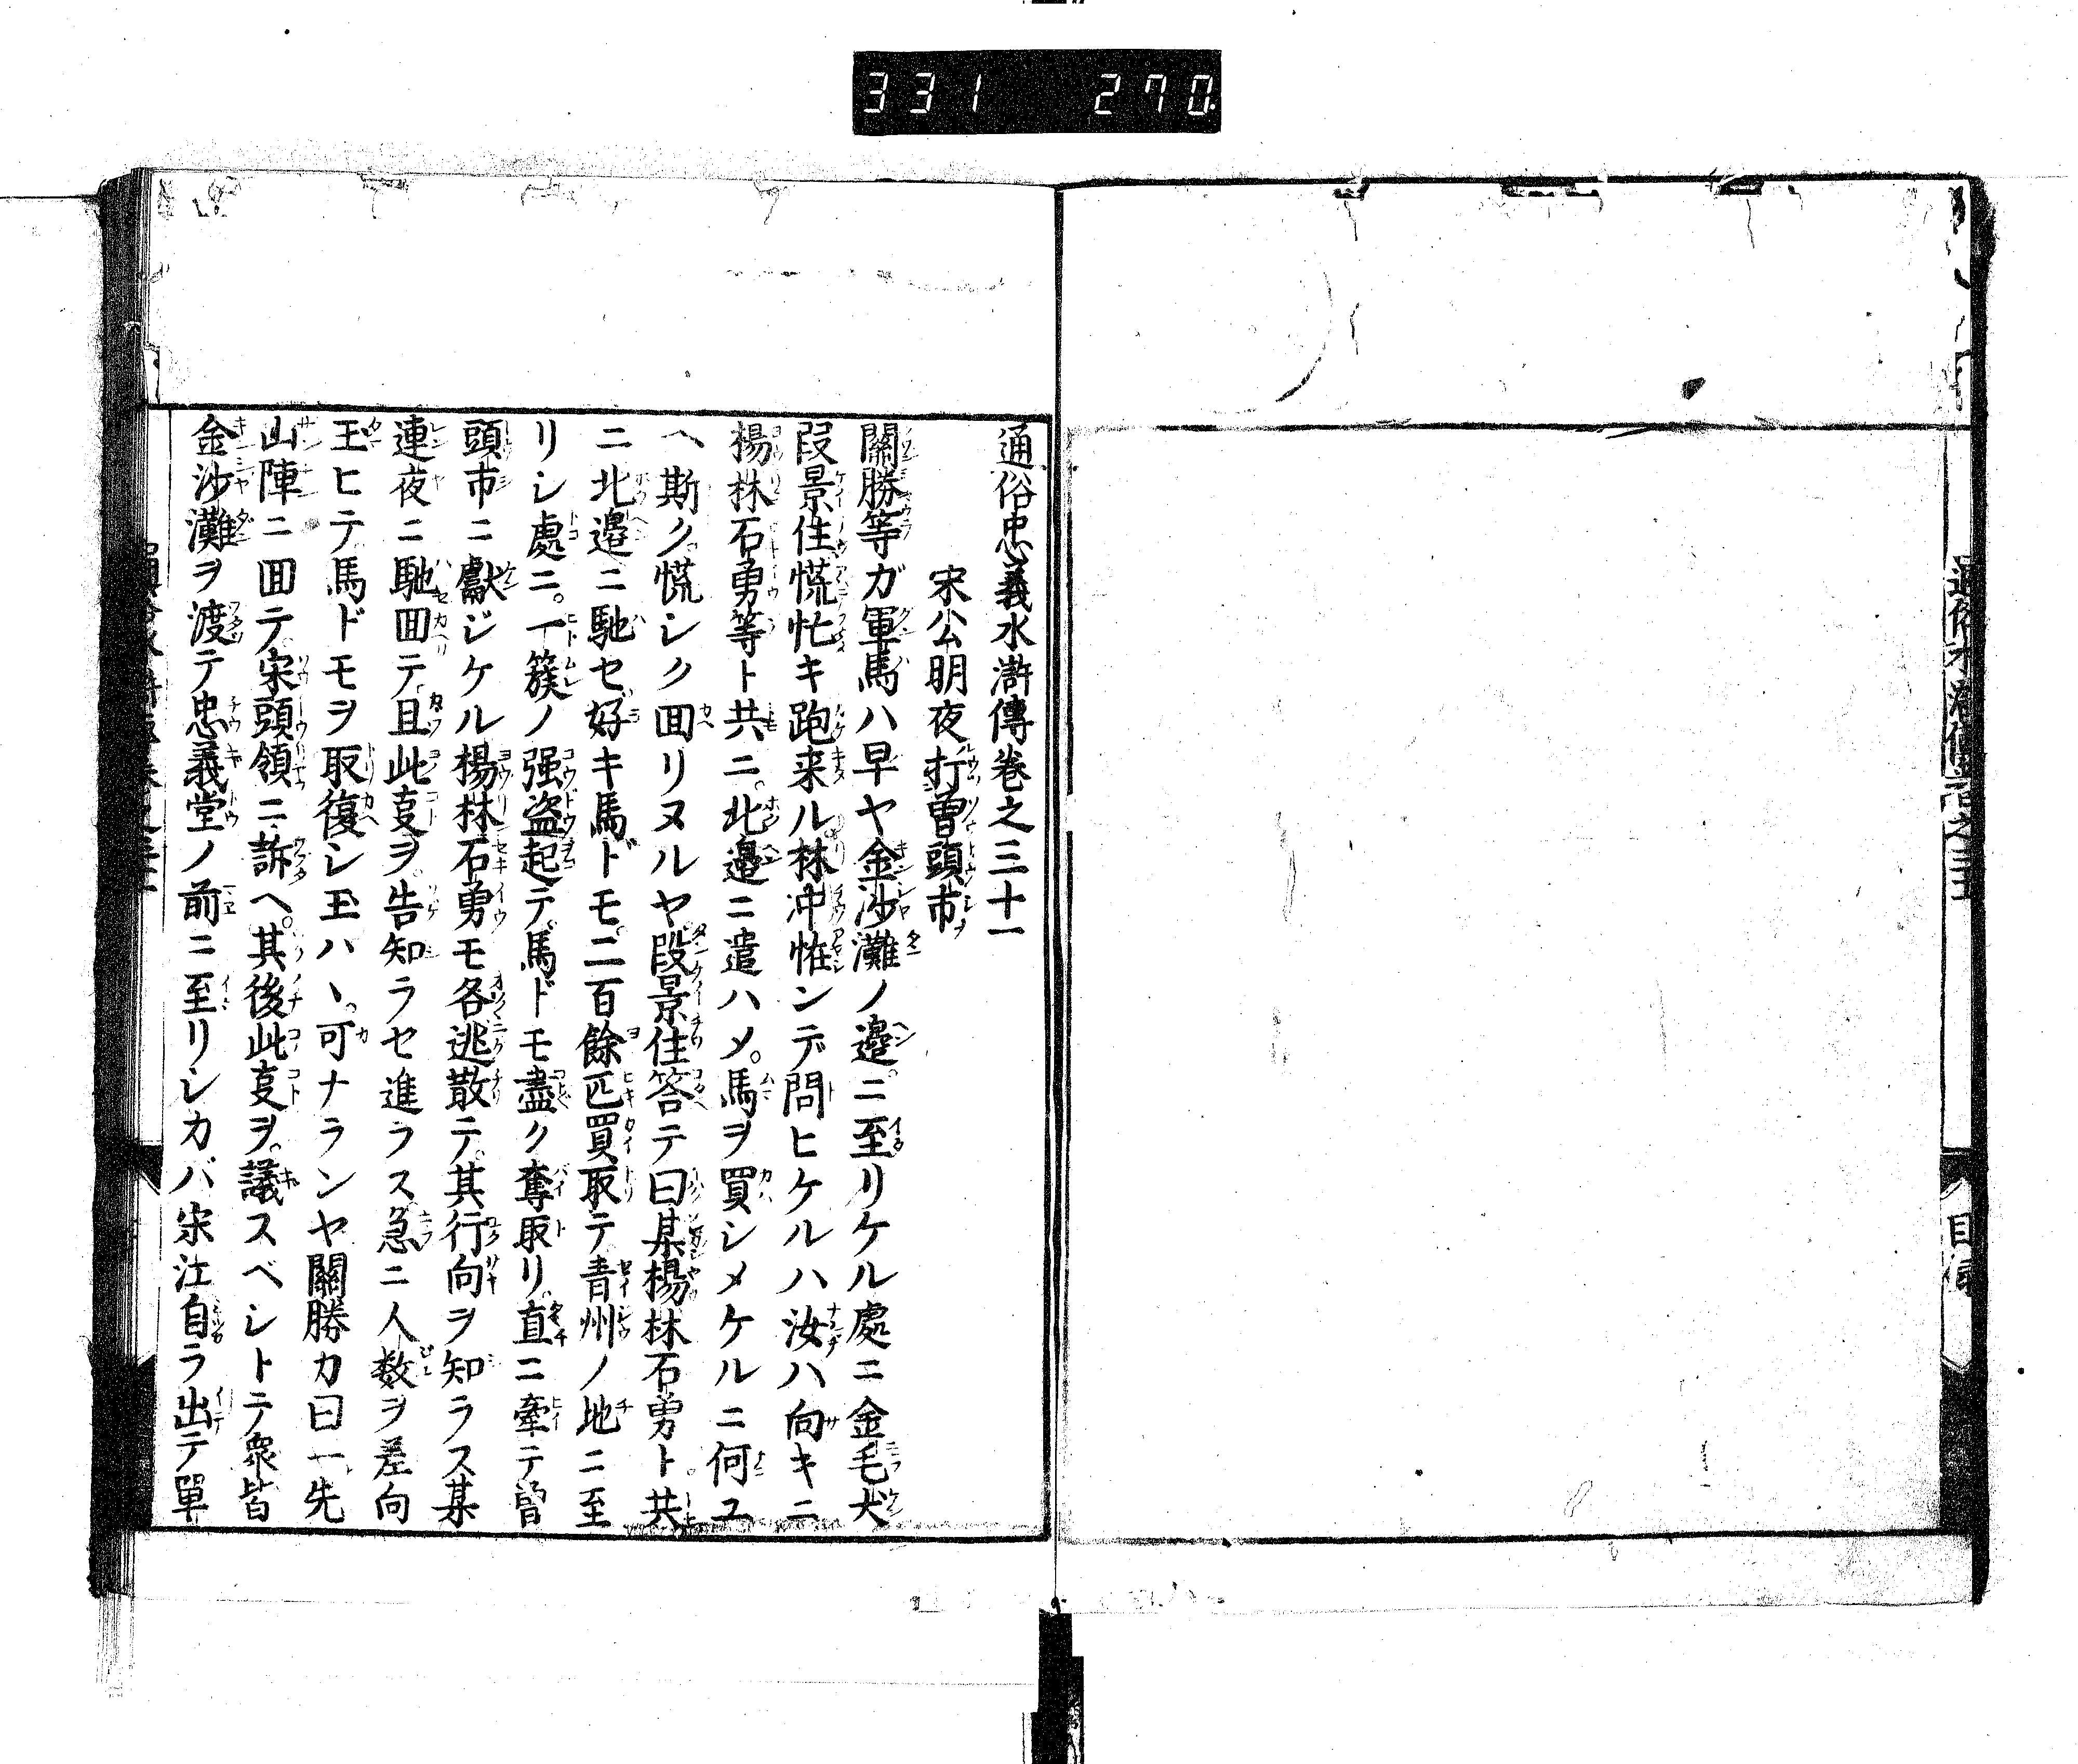 331 270
通俗忠義水滸傳卷之三十一
宋公明夜打曾頭市
關勝等ガ軍馬ハ早ヤ金沙灘ノ邉ニ至リケル處ニ金毛犬
段景住慌忙キ跑来ル林冲恠ンデ問ヒケルハ汝ハ向キニ
楊林石勇等ト共ニ。北邉ニ遣ハメ。馬ヲ買シメケルニ何ユ
ヘ斯ク慌シク囬リヌルヤ段景住答テ曰某楊林石勇ト共
ニ北邉ニ馳セ好キ馬ドモ。二百餘匹買取テ青州ノ地ニ至
リシ處ニ。一簇ノ强盗起テ。馬ドモ盡ク奪取リ。直ニ牽テ曾
頭市ニ獻ジケル楊林石勇モ各逃散テ。其行向ヲ知ラス某
連夜ニ馳囬テ且此㕝ヲ。告知ラセ進ラス急ニ人数ヲ差向
玉ヒテ馬ドモヲ取復シ玉ハヽ。可ナランヤ關勝カ曰一先
山陣ニ囬テ。宋頭領ニ訴ヘ。其後此㕝ヲ。議スベシトテ衆皆
金沙灘ヲ渡テ忠義堂ノ前ニ至リシカバ宋江自ラ出テ單